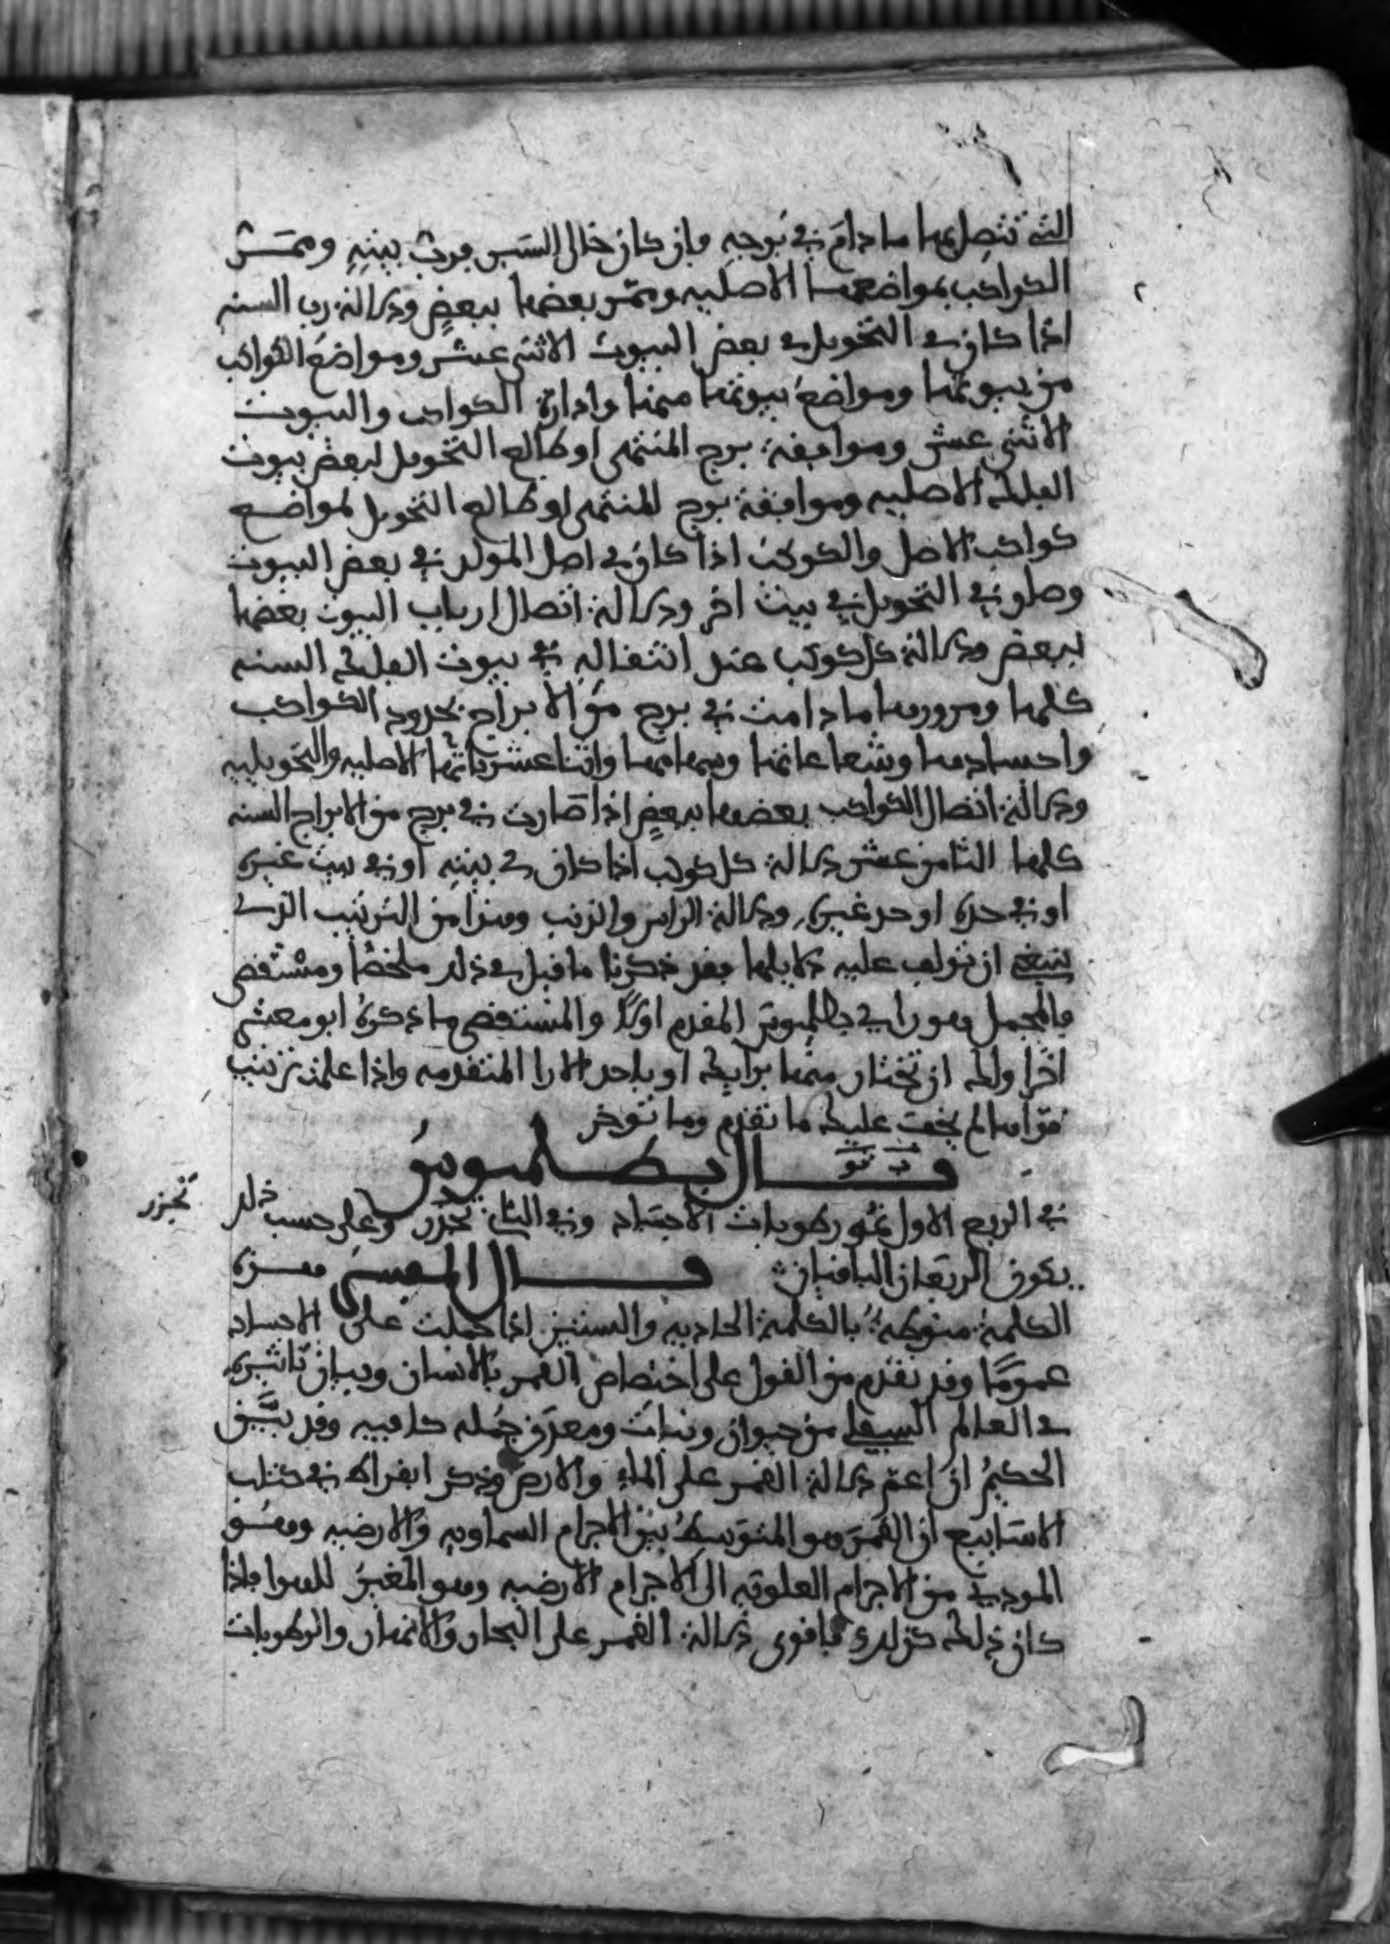 التي تتصل بها ما دام في برجه وان كان خالي السير فرب بيته وممر
الكواكب بمواضعها الاصليه وممر بعضها ببعض ودلالة رب السنه
اذا كان في التحويل في بعض البيوت الاثني عشر ومواضع الكواكب
من بيوتها ومواضع بيوتها منها وادارة الكواكب والبيوت
الاثني عشر وموافقة برج المنتهى او طالع التحويل لبعض بيوت
الفلك الاصليه وموافقة برج المنتهى او طالع التحويل لمواضع
كواكب الاصل والكوكب اذا كان في اصل المولد في بعض البيوت
وحلو في التحويل في بيت اخر ودلالة اتصال ارباب البيوت بعضها
ببعض ودلالة كل كوكب عند انتقاله في بيوت الفلك السنه
كلها ومرورها ما دامت في برج من الابراج بحدود الكواكب
واجسادها وشعاعاتها وسهامها واثنا عشرياتها الاصليه والتحويليه
ودلالة اتصال الكواكب بعضها ببعض اذا صارت في برج من الابراج السنه
كلها الثامن عشر دلالة كل كوكب اذا كان في بيته او في بيت غيره
او في حده او حد غيره ودلالة الراس والذنب وهذا من الترتيب الذي
ينبغي ان تولف عليه دلايلها فقد ذكرنا ما قيل في ذلك ملخصا ومستقصى
فالمجمل هو راي بطلميوس المقدم اولا والمستقصى ما ذكره ابو معشر
اخرا ولك ان تختار منها برايك او باحد الارا المتقدمه واذا علمت ترتيب
قواها لم يخف عليك ما تقدم وما توخر
قال بطلميوس
في الربع الاول تنمو رطوبات الاجساد وفي الثاني تجزر وعلى حسب ذلك
تجزر
يكون الربعان الباقيان قال المفسر هذه
الكلمة منوطة بالكلمة الحادية والستين اذا حملت على الاجساد
عموما وقد تقدم من القول على اختصاص القمر بالانسان وبيان تاثيره
في العالم السفلي من حيوان ونبات ومعدن جمله كافيه وقد بين
الحكيم ان اعم دلالة القمر على الماء والارض وذكر ابقراط في كتاب
الاسابيع ان القمر هو المتوسط بين الاجرام السماويه والارضيه وهو
المودي من الاجرام العلويه الى الاجرام الارضيه وهو المغير للهوا فاذا
كان ذلك كذلك فاقوى دلالة القمر على البحار والانهار والرطوبات